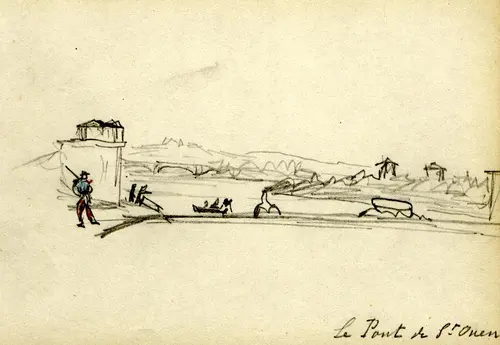 Le Pont de St Ouen